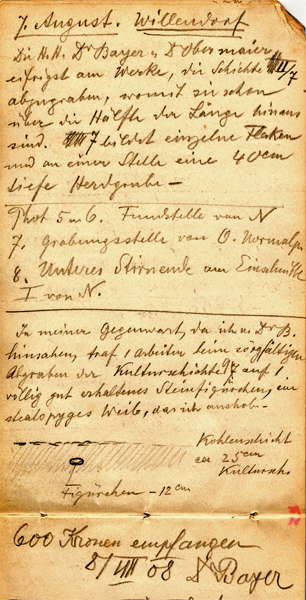 7. August. Willendorf
Die H.H. Dr Bayer u. Dr Obermaier
eifrigst am Werke, die Schichte VIII/7
abzugraben, womit zu schon
über die Hälfte der Länge hinaus
sind. 7 bildet einzelne Flecken
und an einer Stelle eine 40 cm
tiefe Herdgrube –
Phot 5 u 6. Fundstelle von N
7. Grabungsstelle von O. Normalpr
8. Unteres Stirnende am
I von N.
In meiner Gegenwart, da ich u. Dr B.
hinsahen, traf 1 Arbeiter beim sorgfältigen
Abgraben der Kulturschichte auf 1
völlig gut erhaltenes Steinfigürchen, ein
steatopyges Weib, das ich aushob.–
Kohlenschicht
ca 25 cm
Kultursch
Figürchen – 12 cm
600 Kronen empfangen
8/VIII 08 Dr Bayer